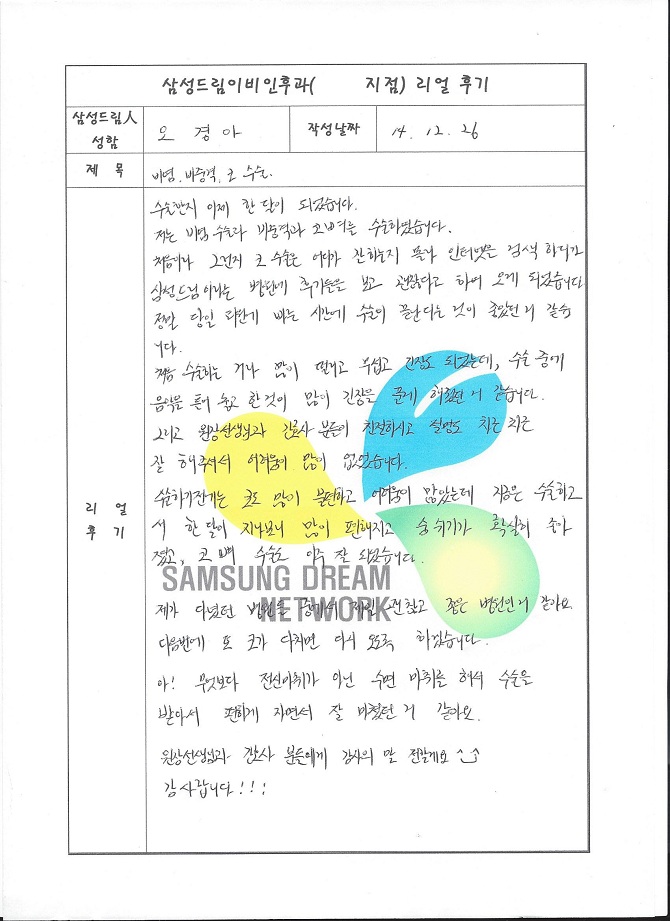 삼성드림이비인후과( 지점) 리얼 후기
삼성드림人
성함
오 경 아
작성날짜
14. 12. 26
제 목
비염, 비중격, 코 수술.
리 얼
후 기
수술한지 이제 한 달이 되었습니다.
저는 비염 수술과 비중격과 코뼈를 수술하였습니다.
처음이나 그런지 코 수술은 어디가 잘하는지 몰라 인터넷을 검색 하다가
삼성드림이라는 병원에 후기들을 보고 괜찮다고 하여 오게 되었습니다
정말 당일 바로 빠른 시간에 수술이 끝난다는 것이 좋았던 거 같습
니다.
처음 수술하는 거라 많이 떨리고 무섭고 긴장도 되었는데, 수술 중에
음악을 틀어 놓고 한 것이 많이 긴장을 풀게 해줬던 거 같습니다.
그리고 원장선생님과 간호사 분들이 친절하시고 설명도 차근차근
잘 해주셔서 어려움이 많이 없었습니다.
수술하기전기는 코도 많이 불편하고 어려움이 많았는데 지금은 수술하고
서 한 달이 지나보니 많이 편해지고 숨 쉬기가 확실히 좋아
졌고, 코 뼈 수술도 아주 잘 되었습니다.
SAMSUNG DREAM
NETWORK
제가 다녔던 병원들 중에서 제일 괜찮고 좋은 병원인거 같아요
다음번에 또 코가 다치면 다시 오도록 하겠습니다.
아! 무엇보다 전신마취가 아닌 수면 마취를 해서 수술을
받아서 편하게 자면서 잘 마쳤던 거 같아요.
원장선생님과 간호사 분들에게 감사의 말 전할게요
감사합니다!!!